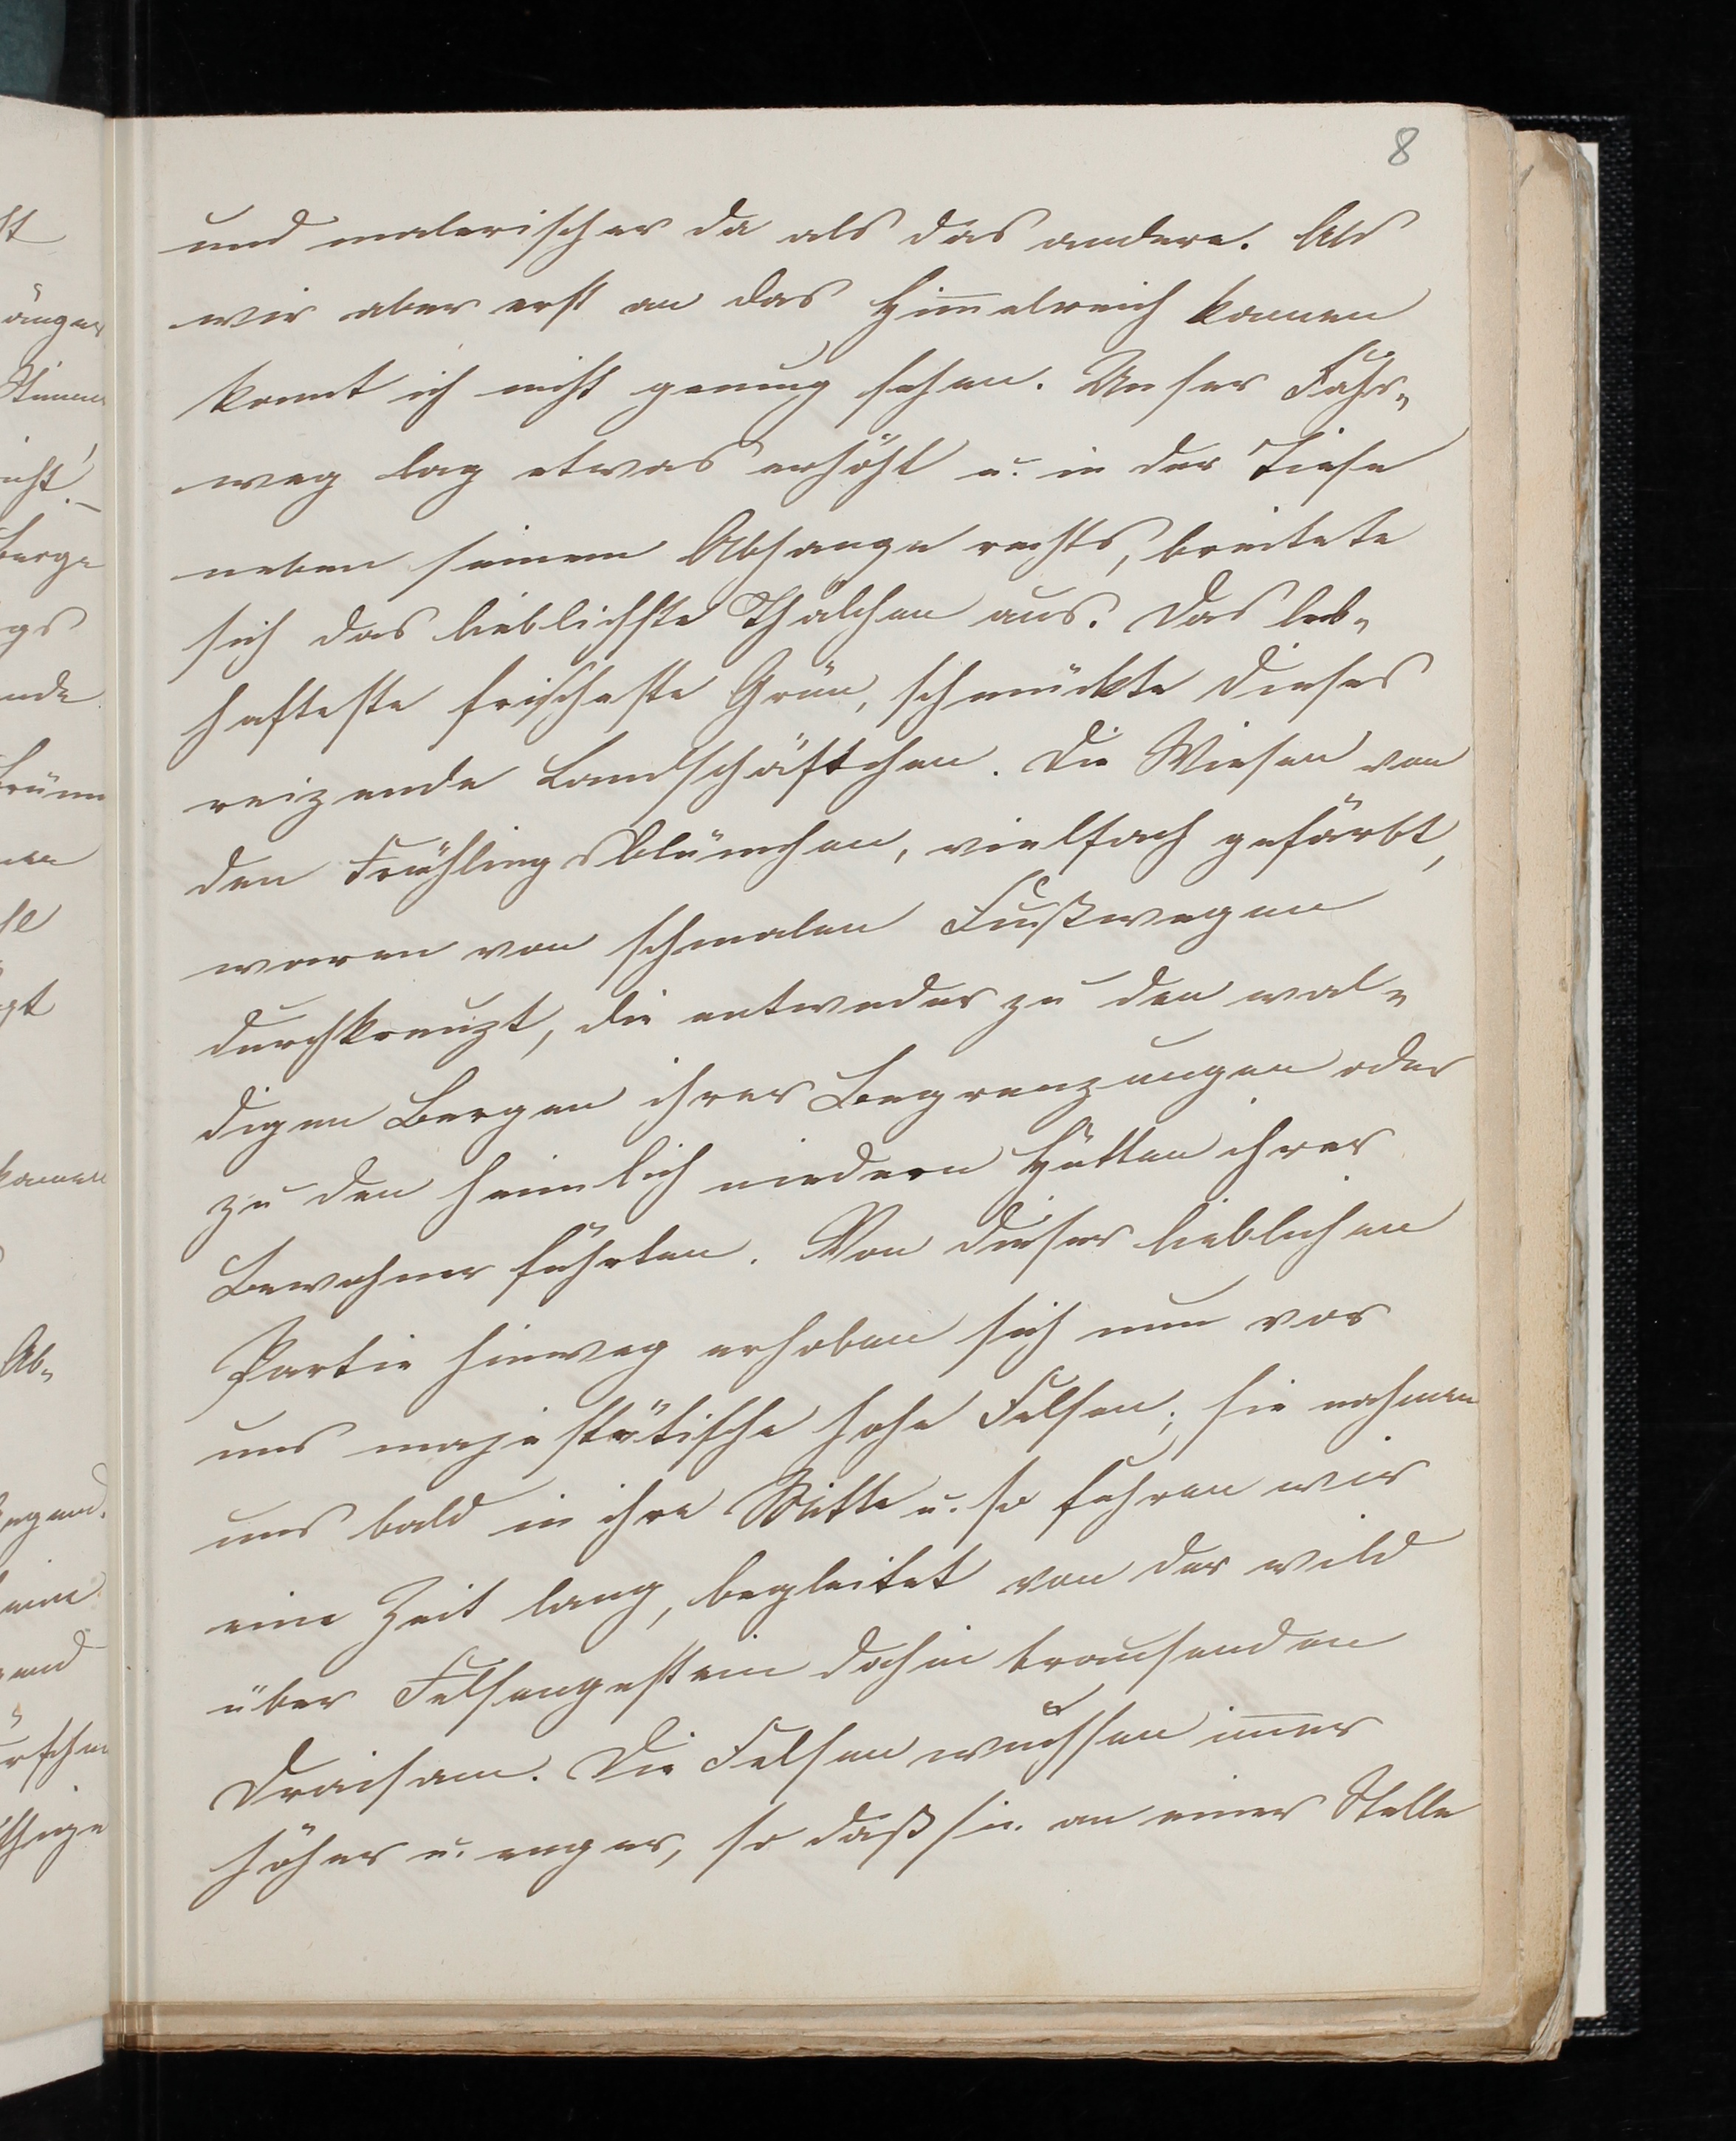 8
und malerischer da als das andere. Als
wir aber erst an das Him̅elreich kamen
konnt ich nicht genug sehen. Unser Fahr-
weg lag etwas erhöht u. in der Tiefe
neben seinem Abhange rechts, breitete
sich das lieblichste Thälchen aus. Das leb-
hafteste frischeste Grün, schmückte dieses
reizende Landschäftchen. Die Wiesen von
den Frühlingsblümchen, vielfach gefärbt,
waren von schmalen Fußwegen
durchkreuzt, die entweder zu den wal-
digen Bergen ihrer Begrenzungen oder
zu den heimlich niedern Hütten ihrer
Bewohner führten. Von dieser lieblichen
Partie hinweg erhoben sich nun vor
uns majestätische hohe Felsen; sie nahmen
uns bald in ihre Mitte u. so fuhren wir
eine Zeit lang, begleitet von der wild
über Felsengestein dahin brausenden
Dreisam. Die Felsen wuchsen im̅er
höher u. enger, so daß sie an einer Stelle